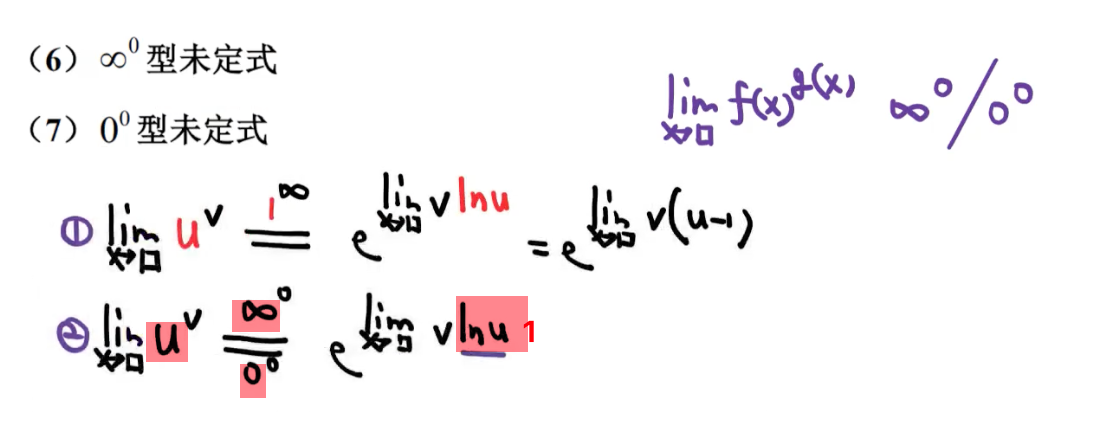 （6）∞⁰ 型未定式
（7）0⁰ 型未定式
lim x→□ f(x)^g(x) ∞⁰/0⁰
① lim x→□ u^v =(1^∞)= e^(lim x→□ v lnu) = e^(lim x→□ v(u-1))
② lim x→□ u^v =(∞⁰)(0⁰)= e^(lim x→□ v lnu) 1